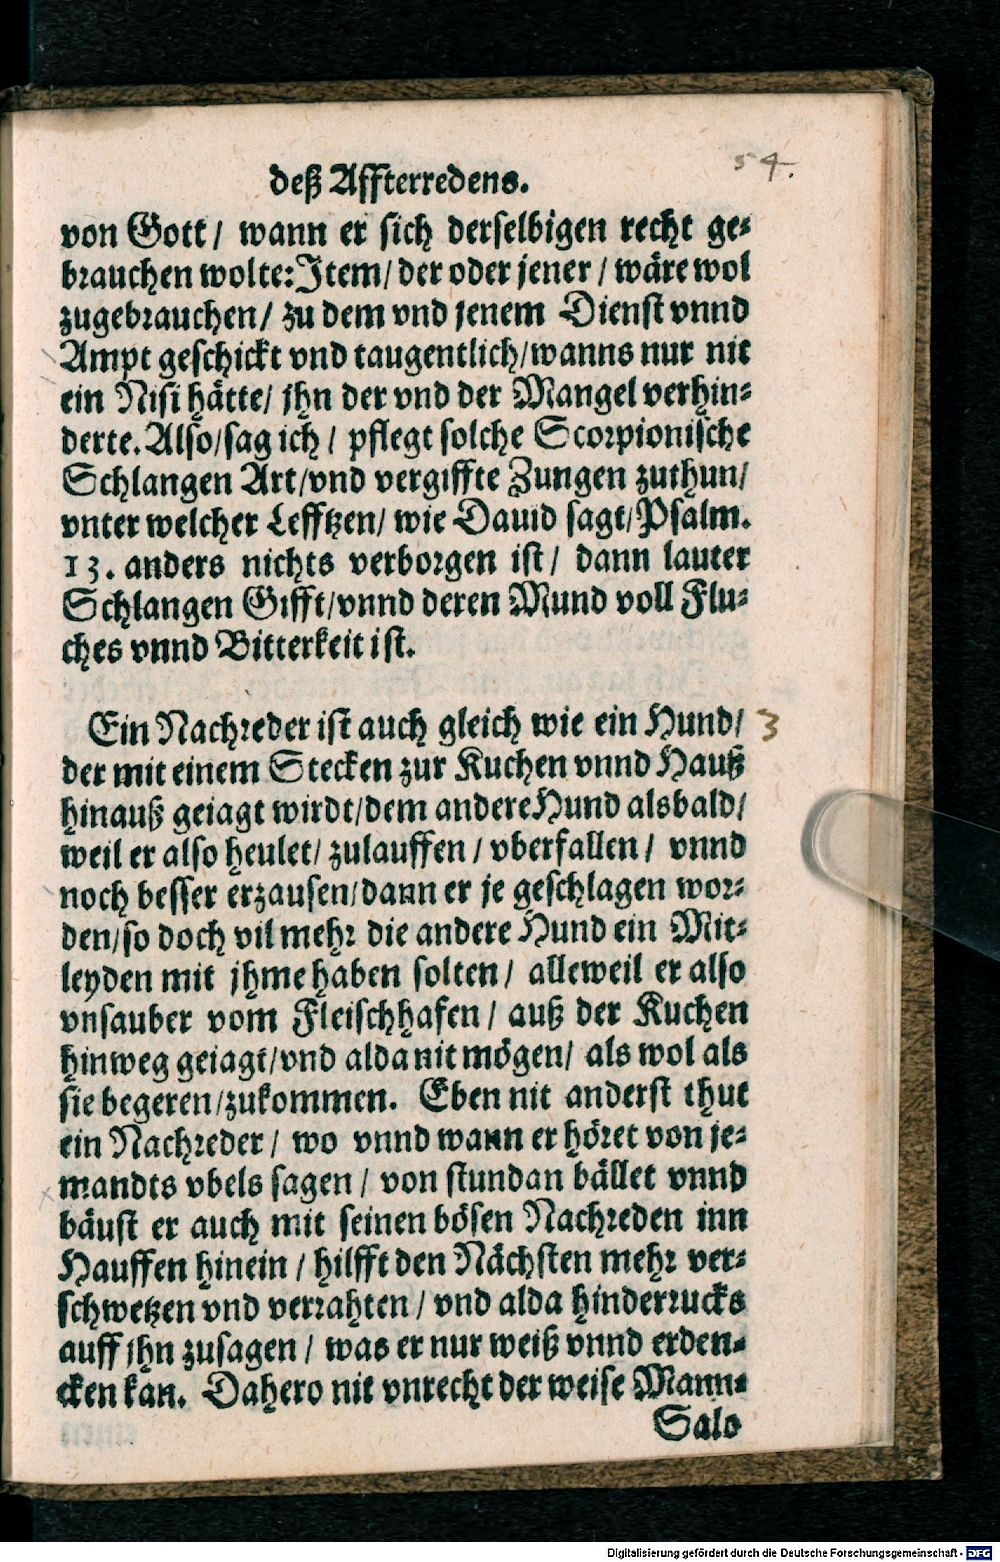 deß Affterredens.
54.
von Gott / wann er sich derselbigen recht ge-
brauchen wolte: Item / der oder jener / wäre wol
zugebrauchen / zu dem vnd jenem Dienst vnnd
Ampt geschickt vnd taugentlich / wanns nur nit
ein Nisi hätte / jhn der vnd der Mangel verhin-
derte. Also / sag ich / pflegt solche Scorpionische
Schlangen Art / vnd vergiffte Zungen zuthun /
vnter welcher Lefftzen / wie Dauid sagt / Psalm.
13. anders nichts verborgen ist / dann lauter
Schlangen Gifft / vnnd deren Mund voll Flu-
ches vnnd Bitterkeit ist.
Ein Nachreder ist auch gleich wie ein Hund / 3
der mit einem Stecken zur Kuchen vnnd Hauß
hinauß geiagt wirdt / dem andere Hund alsbald /
weil er also heulet / zulauffen / vberfallen / vnnd
noch besser erzausen / dann er je geschlagen wor-
den / so doch vil mehr die andere Hund ein Mit-
leyden mit jhme haben solten / alleweil er also
vnsauber vom Fleischhafen / auß der Kuchen
hinweg geiagt / vnd alda nit mögen / als wol als
sie begeren / zukommen. Eben nit anderst thut
ein Nachreder / wo vnnd wann er höret von je-
mandts vbels sagen / von stundan bället vnnd
bäust er auch mit seinen bösen Nachreden inn
Hauffen hinein / hilfft den Nächsten mehr ver-
schwetzen vnd verrahten / vnd alda hinderrucks
auff jhn zusagen / was er nur weiß vnnd erden-
cken kan. Dahero nit vnrecht der weise Mann-
Salo
Digitalisierung gefördert durch die Deutsche Forschungsgemeinschaft - DFG